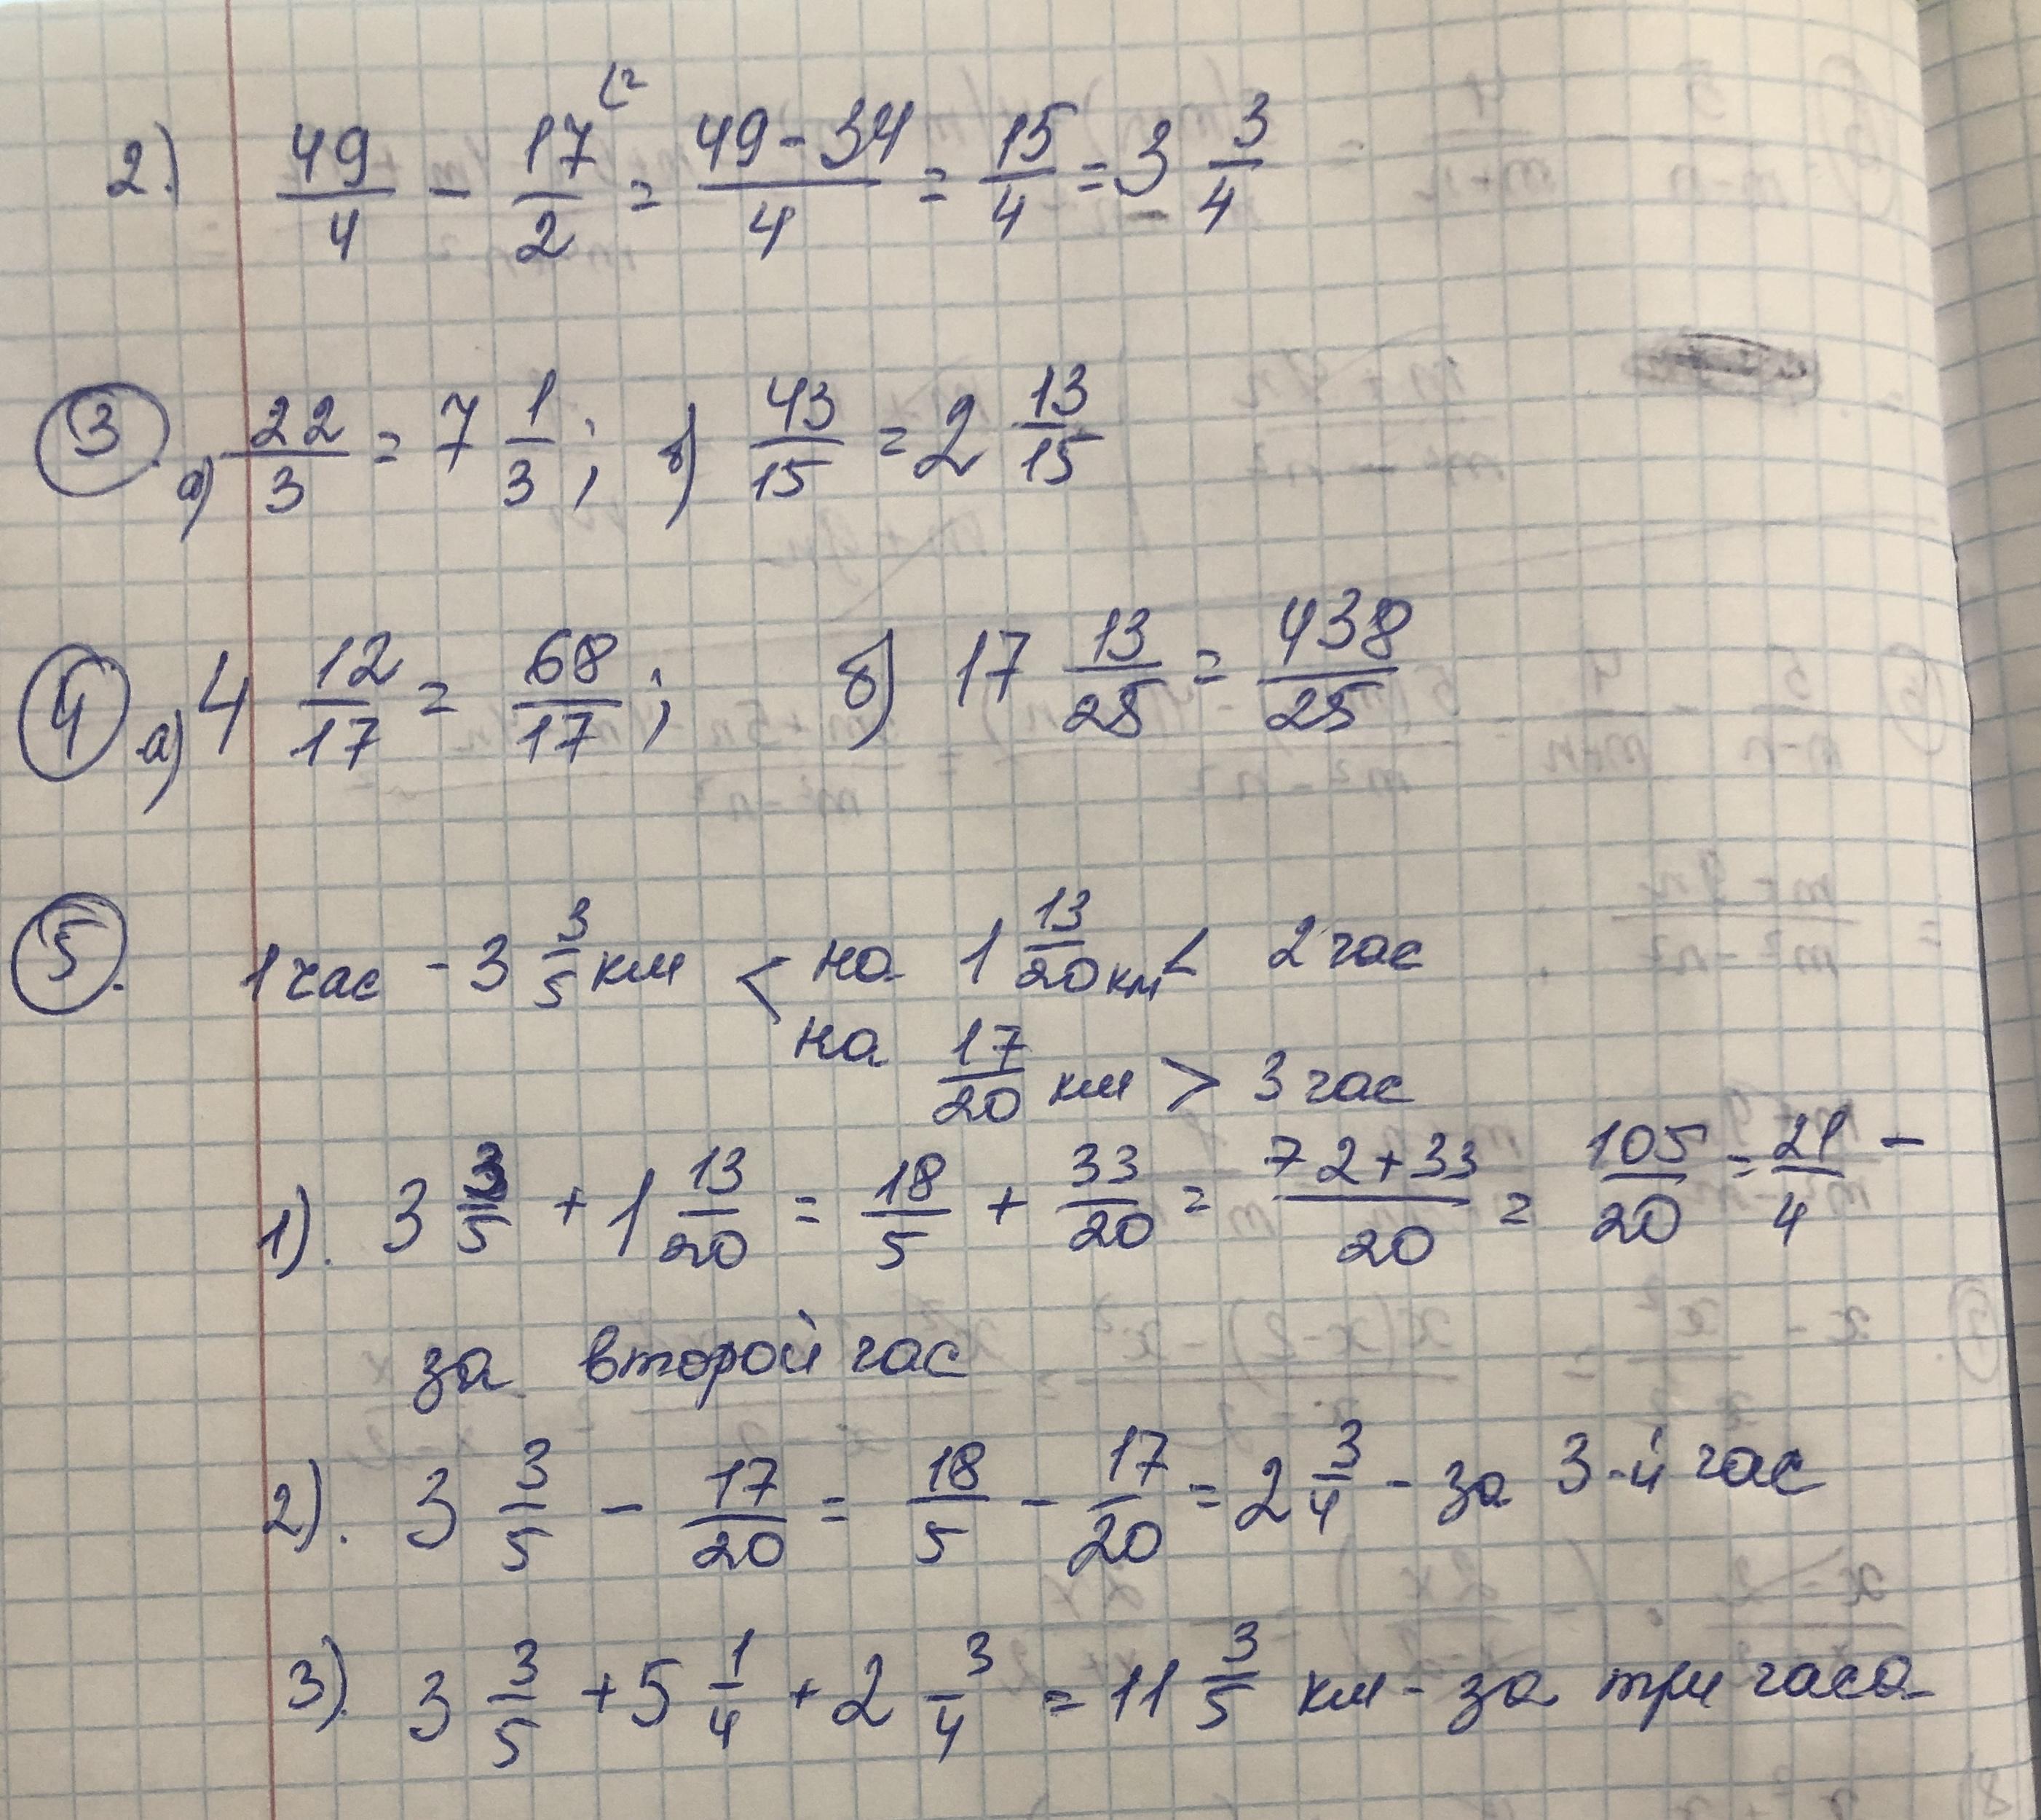 2.) 49/4 - 17/2 (2 = (49-34)/4 = 15/4 = 3 3/4
3. а) 22/3 = 7 1/3; б) 43/15 = 2 13/15
4 а) 4 12/17 = 68/17; б) 17 13/25 = 438/25
5. 1 час - 3 3/5 км < на 1 13/20 км < 2 час
на 17/20 км > 3 час
1). 3 3/5 + 1 13/20 = 18/5 + 33/20 = (72+33)/20 = 105/20 = 21/4 -
за второй час
2). 3 3/5 - 17/20 = 18/5 - 17/20 = 2 3/4 - за 3-й час
3). 3 3/5 + 5 1/4 + 2 3/4 = 11 3/5 км - за три часа